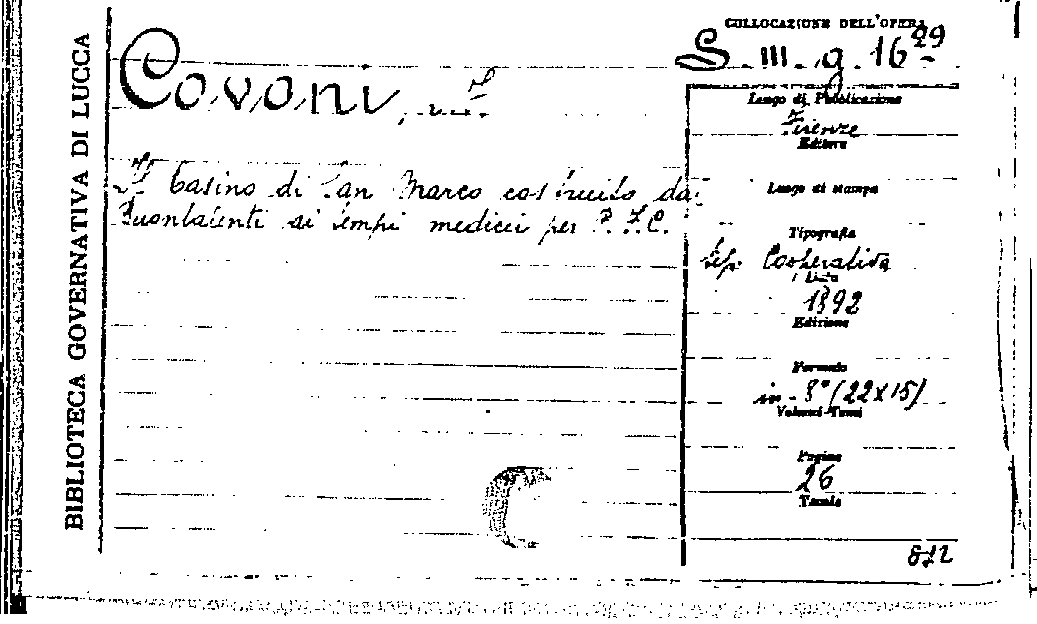 BIBLIOTECA GOVERNATIVA DI LUCCA
COLLOCAZIONE DELL'OPERA
S. III. g. 16 29
Covoni,
Il Casino di San Marco costruito dal
Buontalenti ai tempi medicei per P. F. C.
Luogo di Pubblicazione
Firenze
Editore
Luogo di stampa
Tipografia
tip. Cooperativa
Data
1892
Edizione
Formato
in-8° (22x15)
Volumi-Tomi
Pagine
26
Tavole